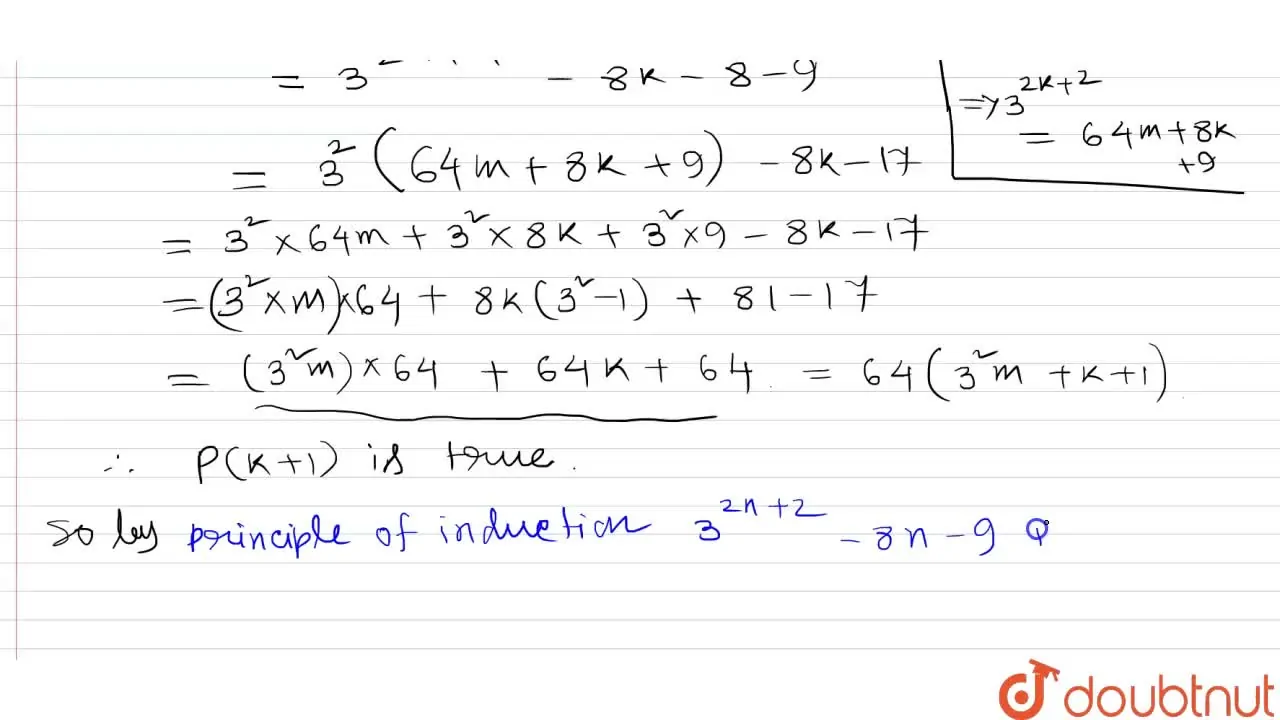 = 3² - 8k - 8 - 9
=> 3^{2k+2}
= 64m + 8k
+9
= 3² (64m + 8k + 9) - 8k - 17
= 3² × 64m + 3² × 8k + 3² × 9 - 8k - 17
= (3² × m) × 64 + 8k (3² - 1) + 81 - 17
= (3² m) × 64 + 64k + 64 = 64 (3² m + k + 1)
∴ P(k+1) is true.
So by principle of induction 3^{2n+2} - 8n - 9
doubtnut